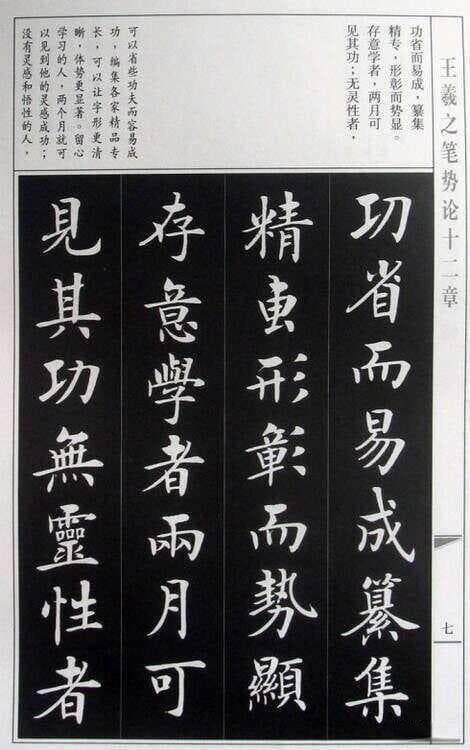 王羲之笔势论十二章
七
功省而易成，纂集
精专，形彰而势显。
存意学者，两月可
见其功；无灵性者，
可以省些功夫而容易成
功，编集各家精品专
长，可以让字形更清
晰，体势更显著。留心
学习的人，两个月就可
以见到他的灵感成功；
没有灵感和悟性的人，
功省而易成纂集
精專形彰而勢顯
存意學者兩月可
見其功無靈性者